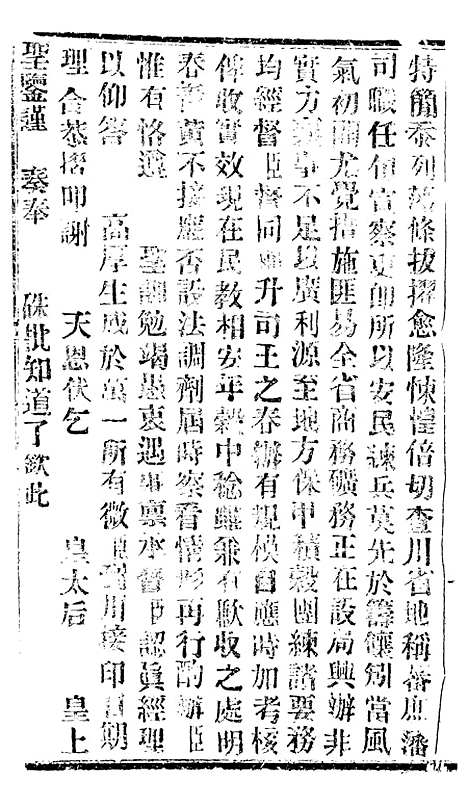 特簡泰列范條拔擢愈隆悚惶倍切查川省地稱蕃庶藩
司職任旬宣察吏卽所以安民練兵莫先於籌餉矧當風
氣初開尤覺措施匪易全省商務礦務正在設局興辦非
實力 事不足以廣利源至地方保甲積穀團練諸要務
均經督臣督同 升司王之春辦有規模自應時加考核
俾收實效現在民教相安年穀中稔雖兼有歉收之處明
春靑黃不接應否設法調劑屆時察看情形再行酌辦臣
惟有恪遵 聖訓勉竭愚衷遇事稟承督臣認眞經理
以仰答 高厚生成於萬一所有微臣 川接印日期
理合恭摺叩謝 天恩伏乞 皇太后 皇上
聖鑒謹 奏奉 硃批知道了欽此